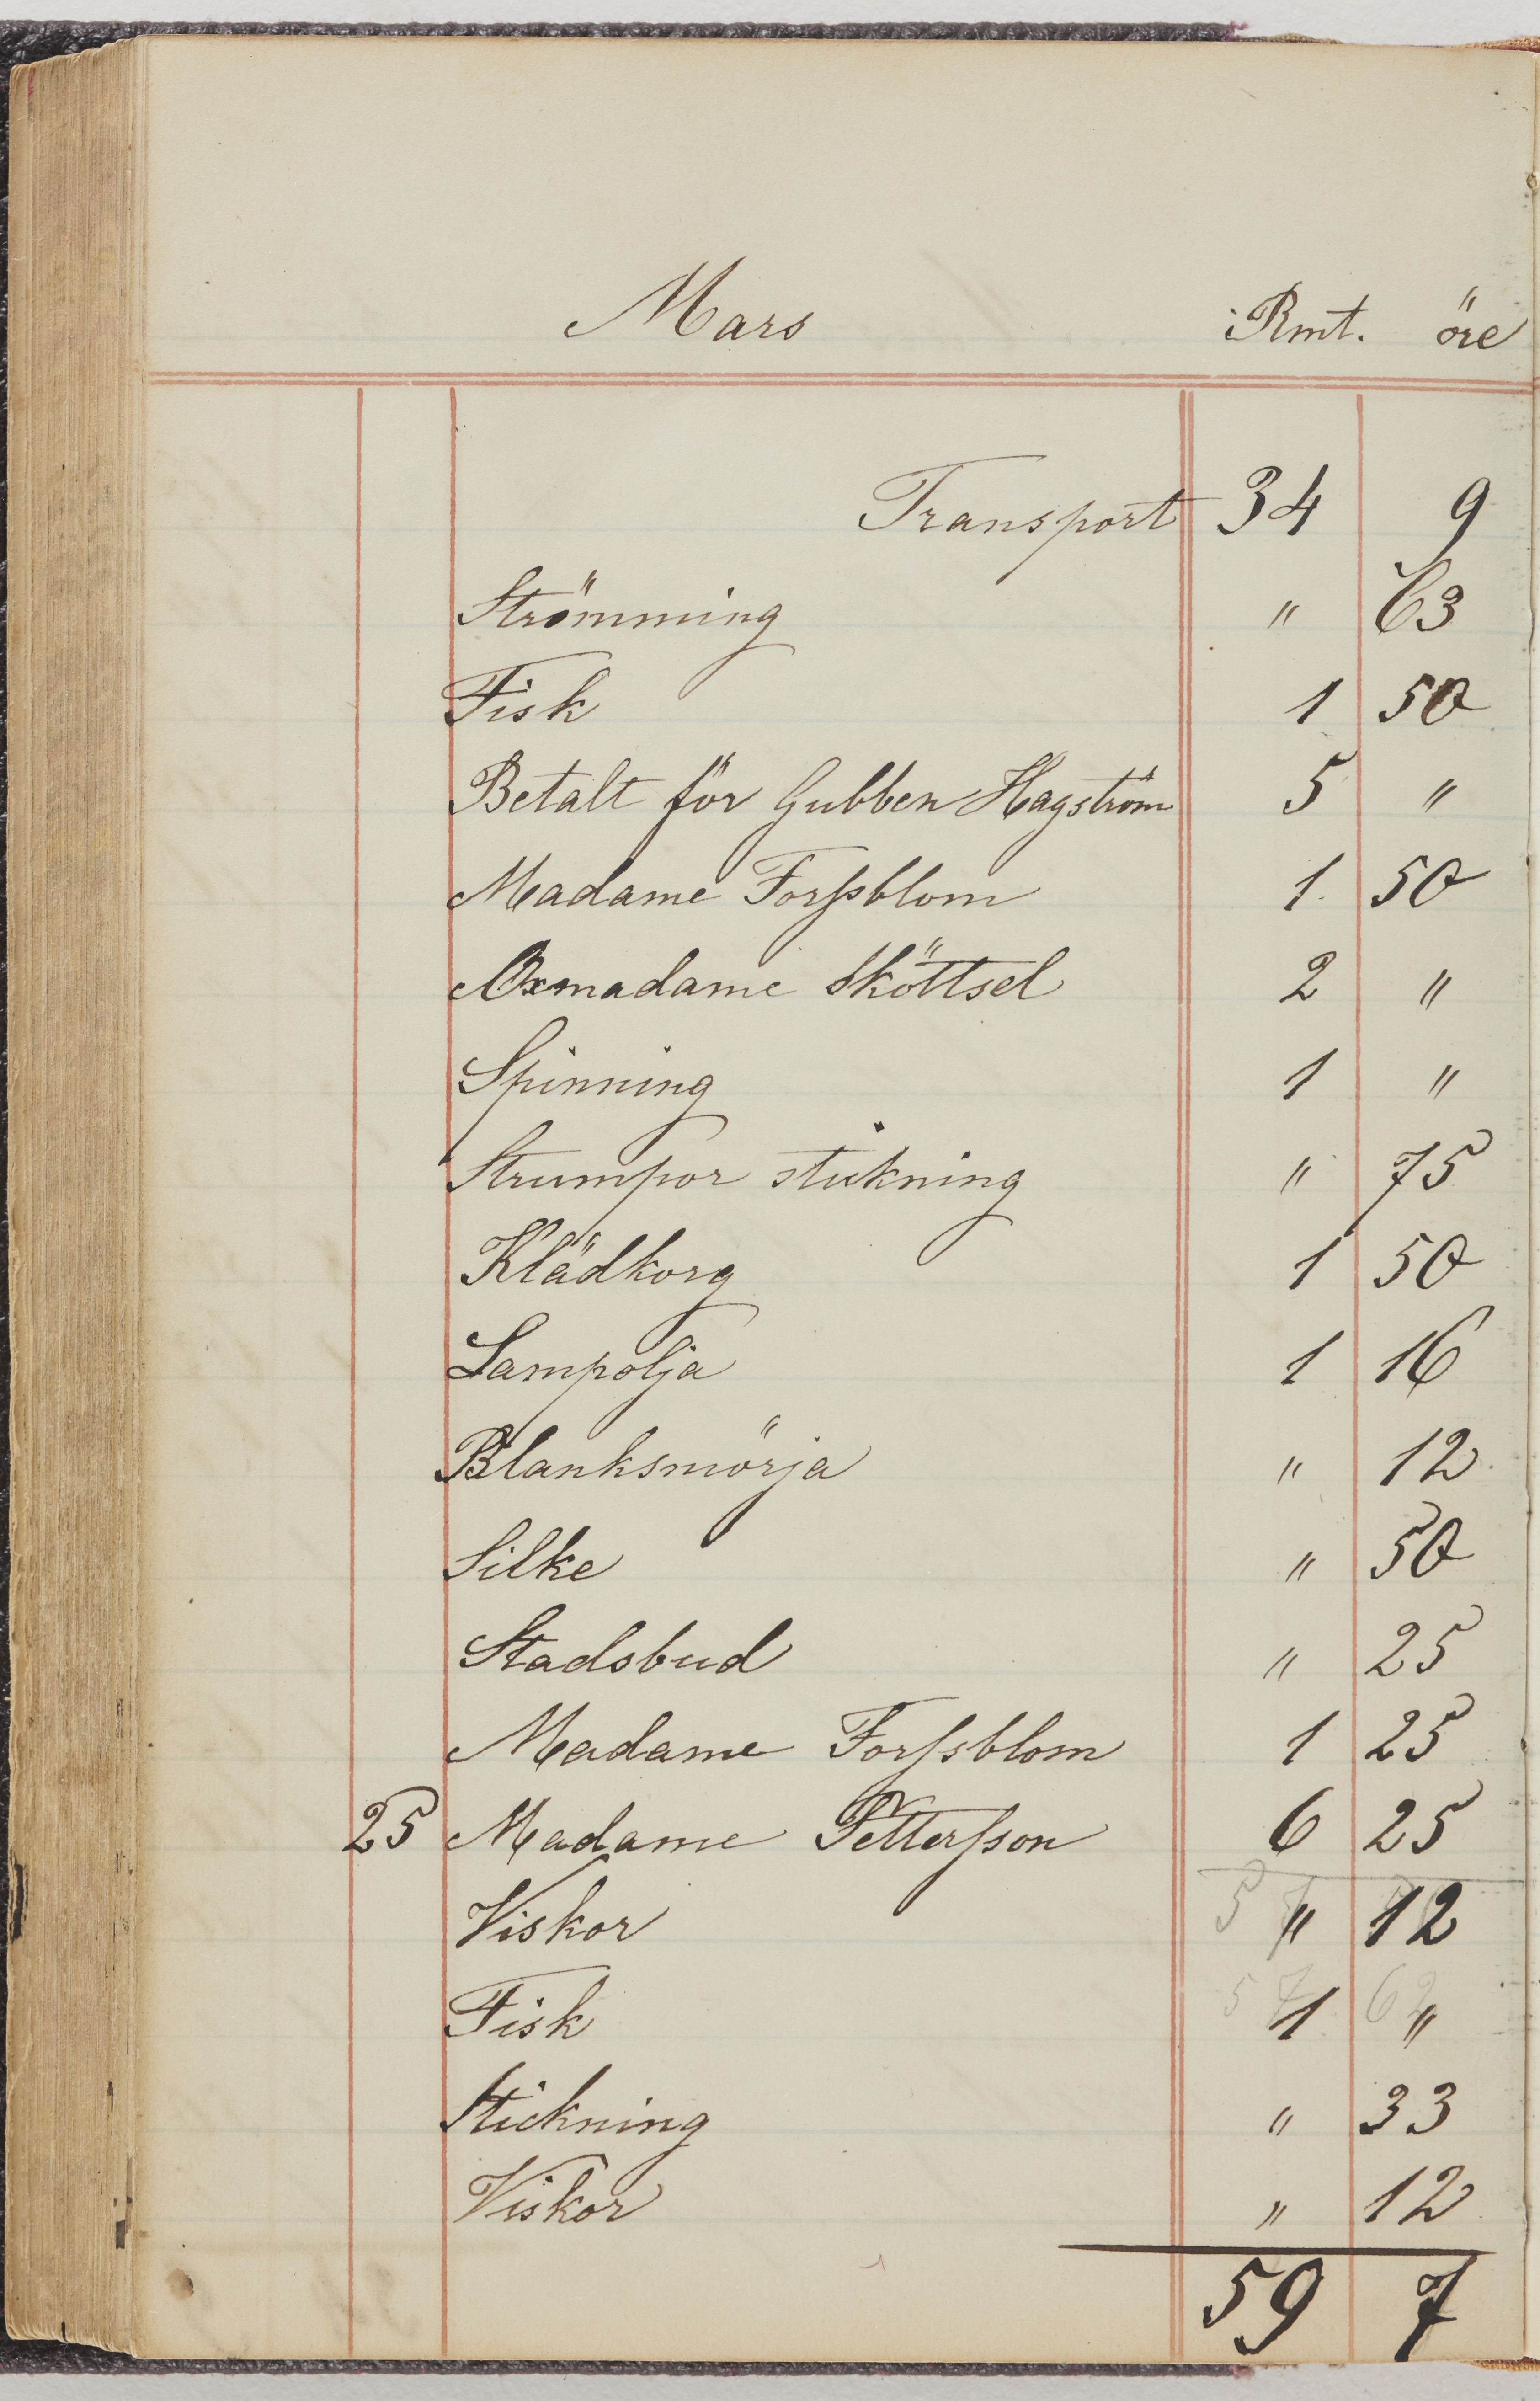 Mars Rmt. öre
Transport 34 9
Strömming " 63
Fisk 1 50
Betalt för Gubben Hagström 5 "
Madame Forssblom 1 50
Oxmadame Sköttsel 2 "
Spinning 1 "
Strumpor stickning " 75
Klädkorg 1 50
Lampolja 1 16
Blanksmörja " 12
Silke " 50
Stadsbud " 25
Madame Forssblom 1 25
25 Madame Pettersson 6 25
Viskor " 12
Fisk 1 "
Stickning " 33
Viskor " 12
59 7